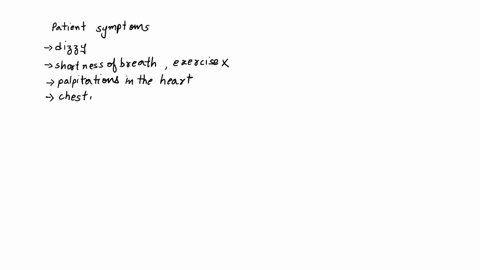 Patient symptoms
→ dizzy
→ shortness of breath, exercise x
→ palpitations in the heart
→ chest,